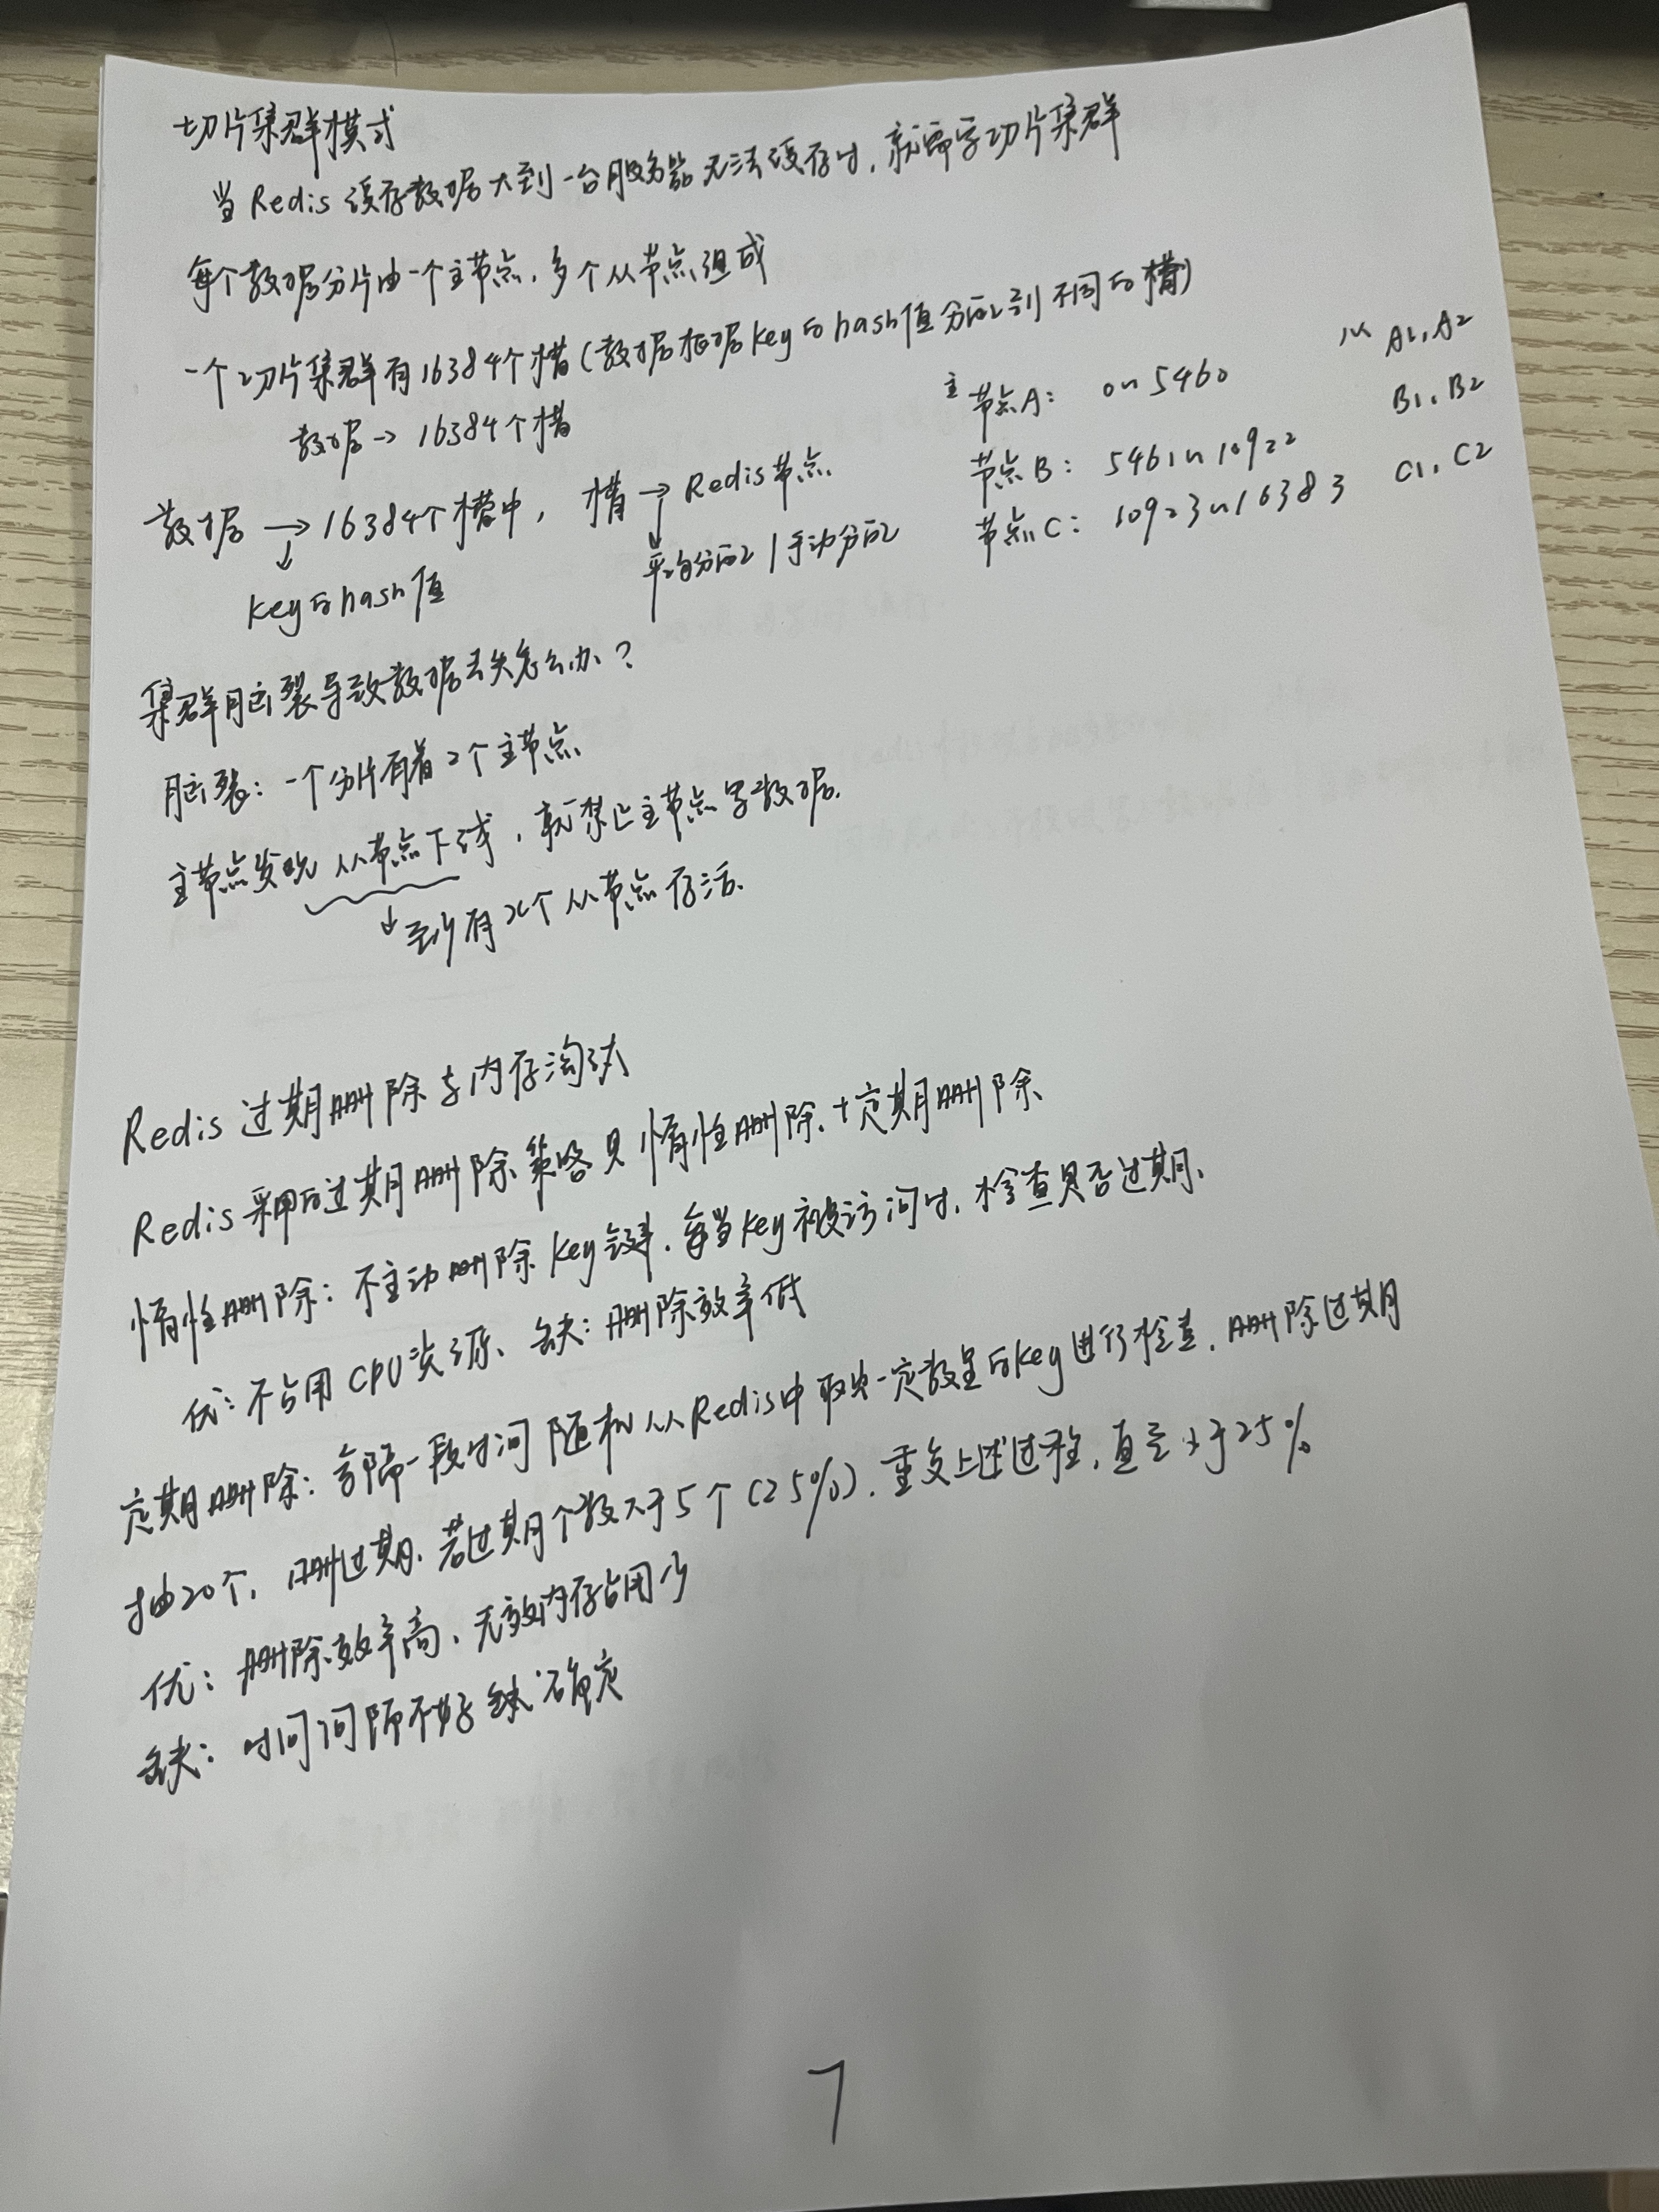 切片集群模式
当Redis缓存数据大到一台服务器无法缓存时，就需要切片集群
每个数据分片由一个主节点，多个从节点组成
一个切片集群有16384个槽（数据根据key的hash值分配到不同的槽）
数据→16384个槽
主 节点A： 0~5460 从 A1，A2
节点B： 5461~10922 B1，B2
节点C： 10923~16383 C1，C2
数据→16384个槽中，槽→Redis节点
↓ key的hash值
↓ 平均分配 | 手动分配
集群脑裂导致数据丢失怎么办？
脑裂：一个分片有着2个主节点
主节点发现从节点下线，就禁止主节点写数据。
↓至少有x个从节点存活。
Redis过期删除与内存淘汰
Redis采用的过期删除策略是惰性删除+定期删除
惰性删除：不主动删除key键，每当key被访问时，检查是否过期。
优：不占用CPU资源、缺：删除效率低
定期删除：每隔一段时间随机从Redis中取出一定数量的key进行检查，删除过期
抽20个，删过期，若过期个数大于5个（25%），重复上述过程，直至小于25%
优：删除效率高，无效内存占用少
缺：时间间隔不好确定
7